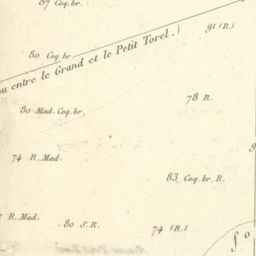 87 Coq. br.
91 (R.)
80 Coq. br.
ou entre le Grand et le Petit Torel.)
80 Mad. Coq. br.
78 R.
74 R. Mad.
83 Coq. br. R.
R. Mad.
80 S. R.
74 (R.)
fo